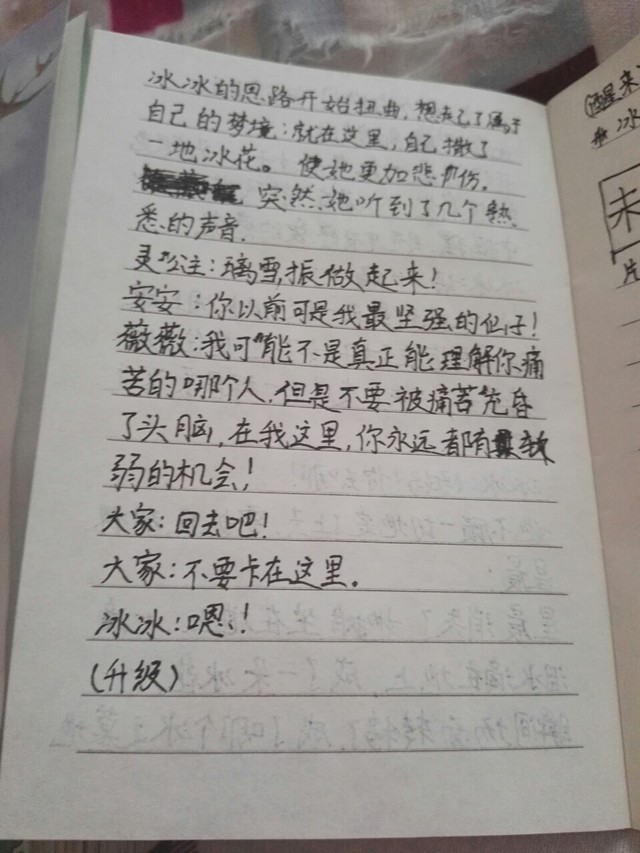 冰冰的思路开始扭曲，想起了属于
自己的梦境：就在这里，自己撒了
一地冰花。使她更加悲伤。
突然她听到了几个熟
悉的声音.
灵公主：璃雪,振做起来！
安安：你以前可是我最坚强的仙子！
薇薇：我可能不是真正能理解你痛
苦的哪个人，但是不要被痛苦充昏
了头脑，在我这里，你永远都有软
弱的机会！
大家：回去吧！
大家：不要卡在这里。
冰冰：嗯！
(升级)
(醒来
冰
未
片